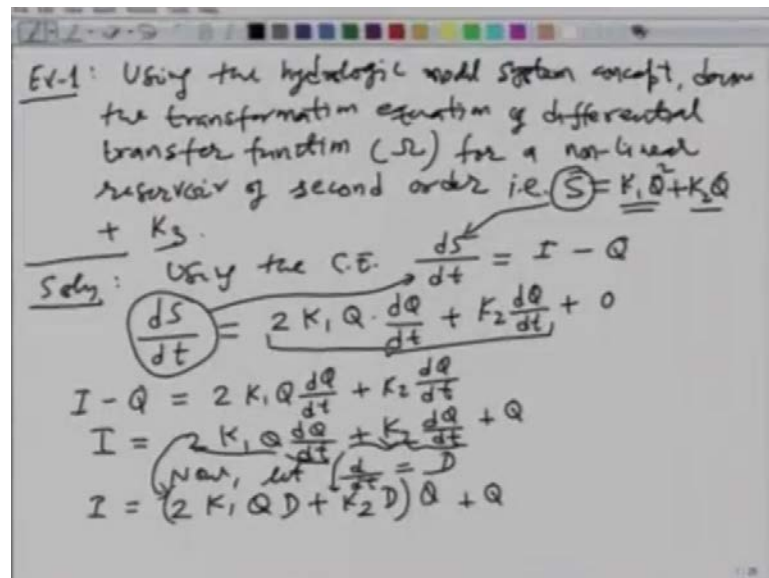 Ex-1: Using the hydrologic model system concept, derive
the transformation equation of differential
transfer function (Ω) for a non-linear
reservoir of second order i.e. S = K₁Q² + K₂Q
+ K₃.
Soln: Using the C.E. dS/dt = I - Q
dS/dt = 2 K₁ Q · dQ/dt + K₂ dQ/dt + 0
I - Q = 2 K₁ Q dQ/dt + K₂ dQ/dt
I = 2 K₁ Q dQ/dt + K₂ dQ/dt + Q
Now, let d/dt = D
I = (2 K₁ Q D + K₂ D) Q + Q